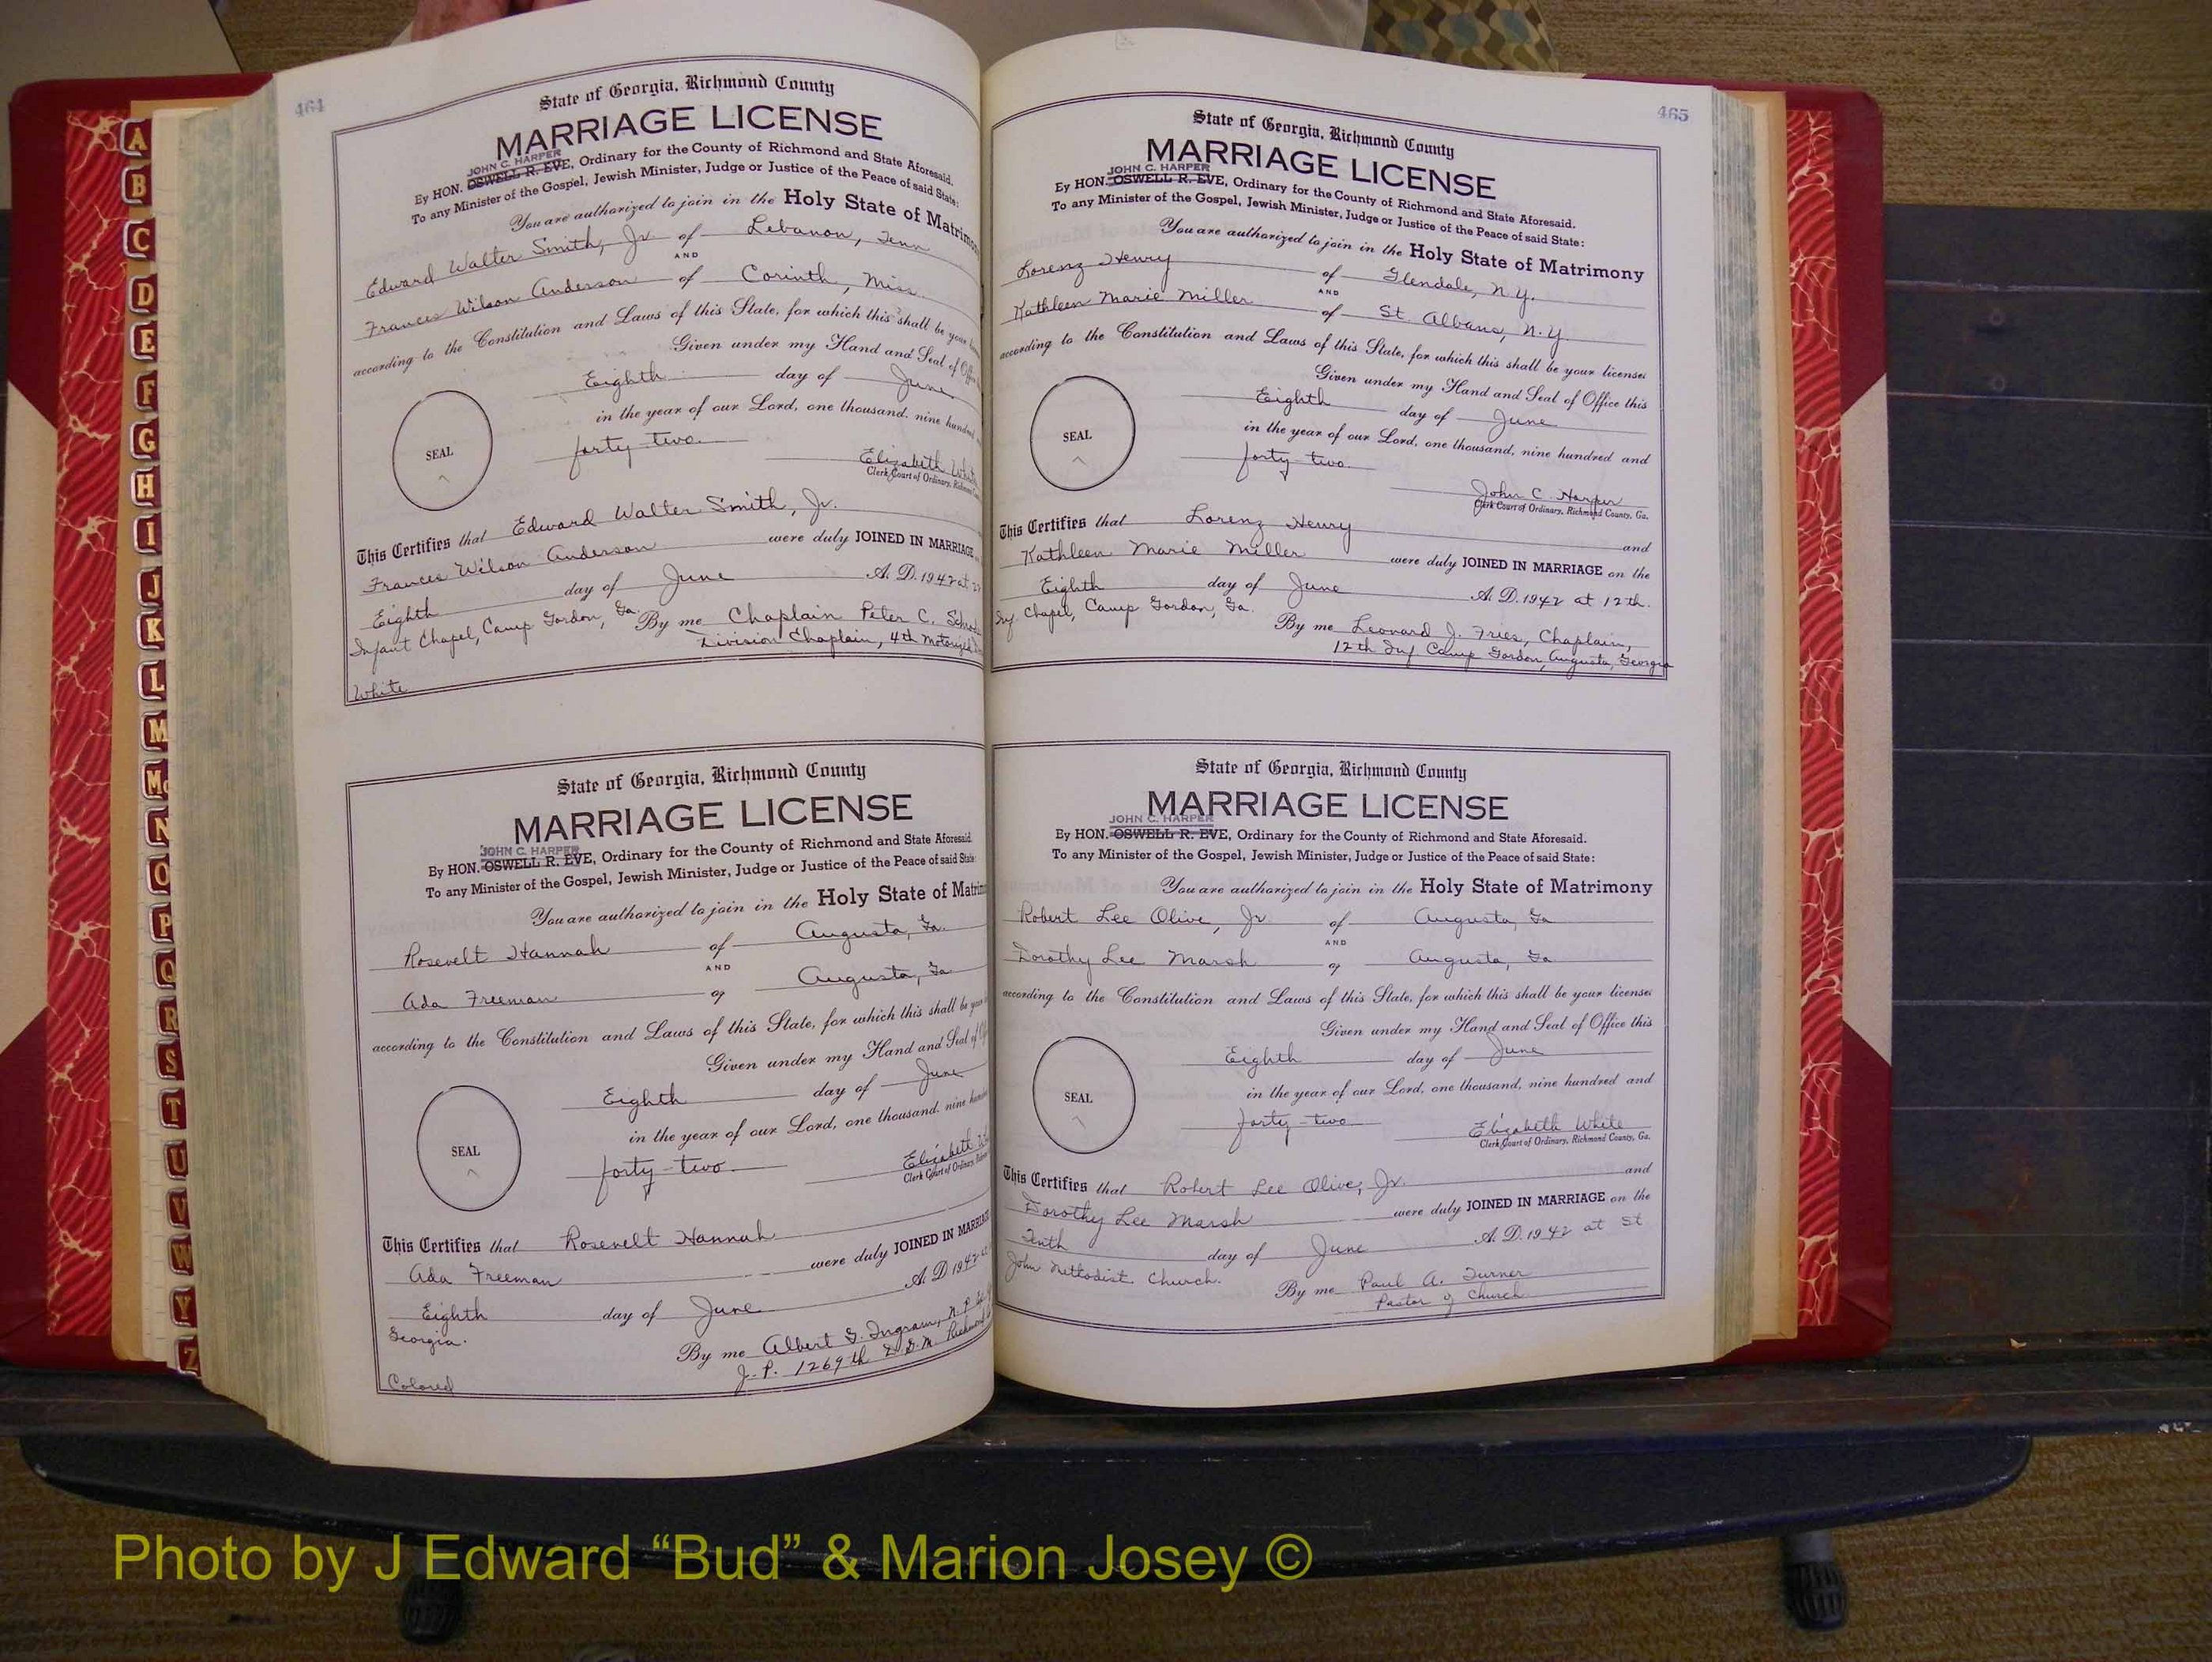 464
State of Georgia, Richmond County
MARRIAGE LICENSE
JOHN C. HARPER
By HON. OSWELL R. EVE, Ordinary for the County of Richmond and State Aforesaid.
To any Minister of the Gospel, Jewish Minister, Judge or Justice of the Peace of said State:
You are authorized to join in the Holy State of Matrimony
Edward Walter Smith, Jr. of Lebanon, Tenn
AND
Frances Wilson Anderson of Corinth, Miss.
according to the Constitution and Laws of this State, for which this shall be your
Given under my Hand and Seal of
Eighth day of June
in the year of our Lord, one thousand, nine hundred
forty-two.
SEAL
Elizabeth
Clerk Court of Ordinary,
This Certifies that Edward Walter Smith, Jr.
Frances Wilson Anderson were duly JOINED IN MARRIAGE
Eighth day of June A. D. 1942 at
Infant Chapel, Camp Gordon, Ga. By me Chaplain Peter C.
Division Chaplain, 4th Motorized
White
State of Georgia, Richmond County
MARRIAGE LICENSE
JOHN C. HARPER
By HON. OSWELL R. EVE, Ordinary for the County of Richmond and State Aforesaid.
To any Minister of the Gospel, Jewish Minister, Judge or Justice of the Peace of said State:
You are authorized to join in the Holy State of
Rosevelt Hannah of Augusta, Ga.
AND
Ada Freeman of Augusta, Ga
according to the Constitution and Laws of this State, for which this shall be
Given under my Hand and Seal of
Eighth day of June
in the year of our Lord, one thousand, nine
forty-two.
SEAL
Elizabeth
Clerk Court of Ordinary,
This Certifies that Rosevelt Hannah
Ada Freeman were duly JOINED IN MARRIAGE
Eighth day of June A. D. 1942 at
Georgia. By me Albert G. Ingram, N. P.
J. P. 1269th D. G. M. Richmond
Colored
465
State of Georgia, Richmond County
MARRIAGE LICENSE
JOHN C. HARPER
By HON. OSWELL R. EVE, Ordinary for the County of Richmond and State Aforesaid.
To any Minister of the Gospel, Jewish Minister, Judge or Justice of the Peace of said State:
You are authorized to join in the Holy State of Matrimony
Lorenz Henry of Glendale, N.Y.
AND
Kathleen Marie Miller of St. Albans, N.Y.
according to the Constitution and Laws of this State, for which this shall be your license:
Given under my Hand and Seal of Office this
Eighth day of June
in the year of our Lord, one thousand, nine hundred and
forty-two.
SEAL
John C. Harper
Clerk Court of Ordinary, Richmond County, Ga.
This Certifies that Lorenz Henry and
Kathleen Marie Miller were duly JOINED IN MARRIAGE on the
Eighth day of June A. D. 1942 at 12th.
Inf Chapel, Camp Gordon, Ga. By me Leonard J. Fries, Chaplain,
12th Inf Camp Gordon, Augusta, Georgia
State of Georgia, Richmond County
MARRIAGE LICENSE
JOHN C. HARPER
By HON. OSWELL R. EVE, Ordinary for the County of Richmond and State Aforesaid.
To any Minister of the Gospel, Jewish Minister, Judge or Justice of the Peace of said State:
You are authorized to join in the Holy State of Matrimony
Robert Lee Olive, Jr. of Augusta, Ga
AND
Dorothy Lee Marsh of Augusta, Ga
according to the Constitution and Laws of this State, for which this shall be your license:
Given under my Hand and Seal of Office this
Eighth day of June
in the year of our Lord, one thousand, nine hundred and
forty-two
SEAL
Elizabeth White
Clerk Court of Ordinary, Richmond County, Ga.
This Certifies that Robert Lee Olive, Jr. and
Dorothy Lee Marsh were duly JOINED IN MARRIAGE on the
Tenth day of June A. D. 1942 at St
John Methodist Church. By me Paul A. Turner
Pastor of Church
A
B
C
D
E
F
G
H
I
J
K
L
M
Mc
N
O
P
Q
R
S
T
U
V
W
Y
Z
Photo by J Edward “Bud” & Marion Josey ©